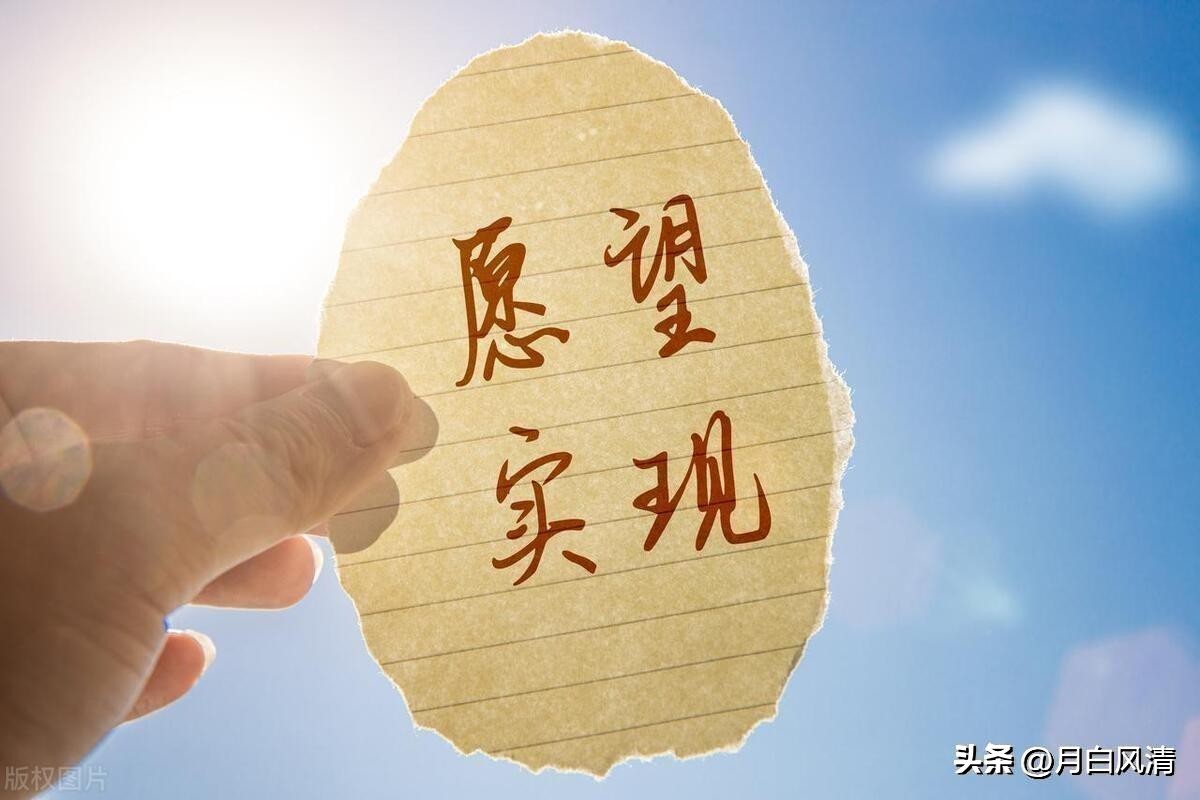 愿望
实现
版权图片
头条 @月白风清